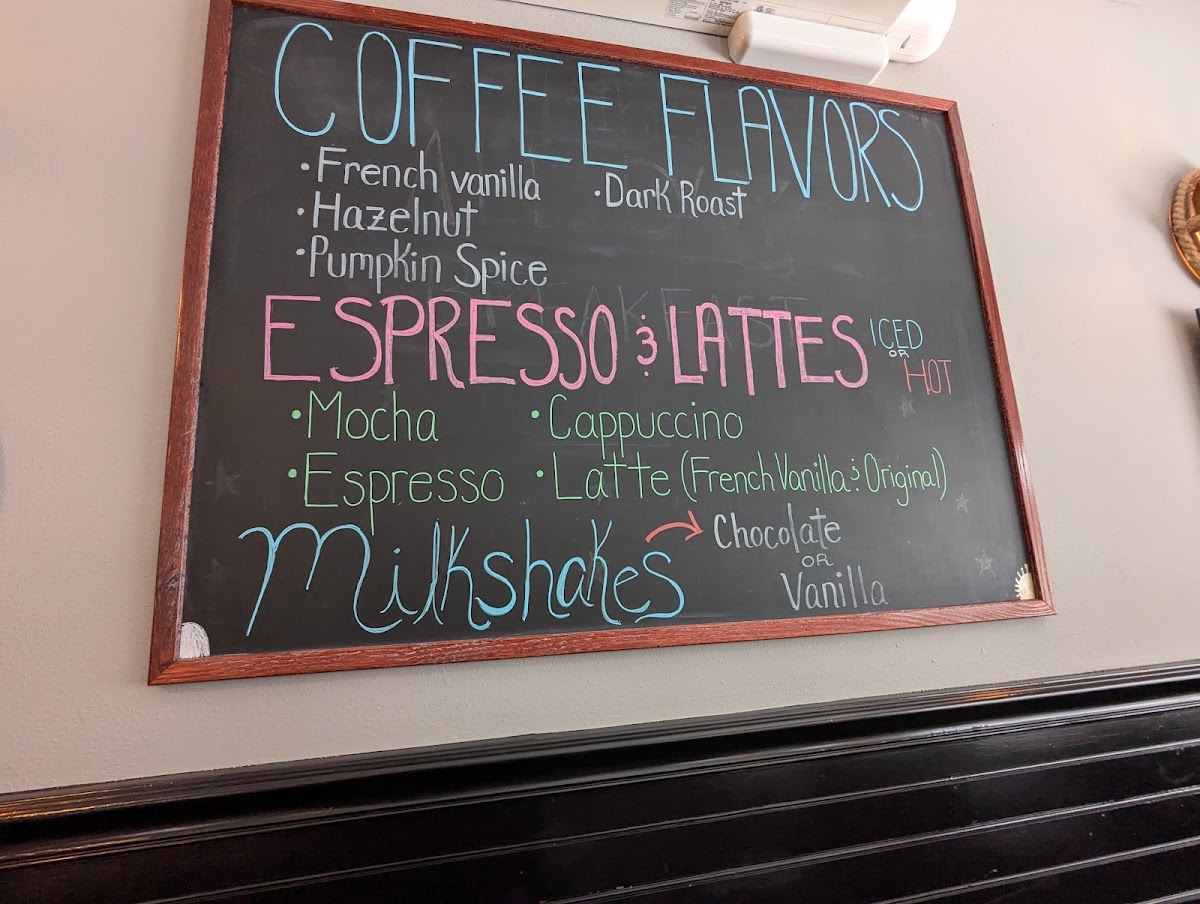 COFFEE FLAVORS
• French vanilla • Dark Roast
• Hazelnut
• Pumpkin Spice
ESPRESSO & LATTES ICED OR HOT
• Mocha • Cappuccino
• Espresso • Latte (French Vanilla & Original)
Milkshakes → Chocolate
OR
Vanilla